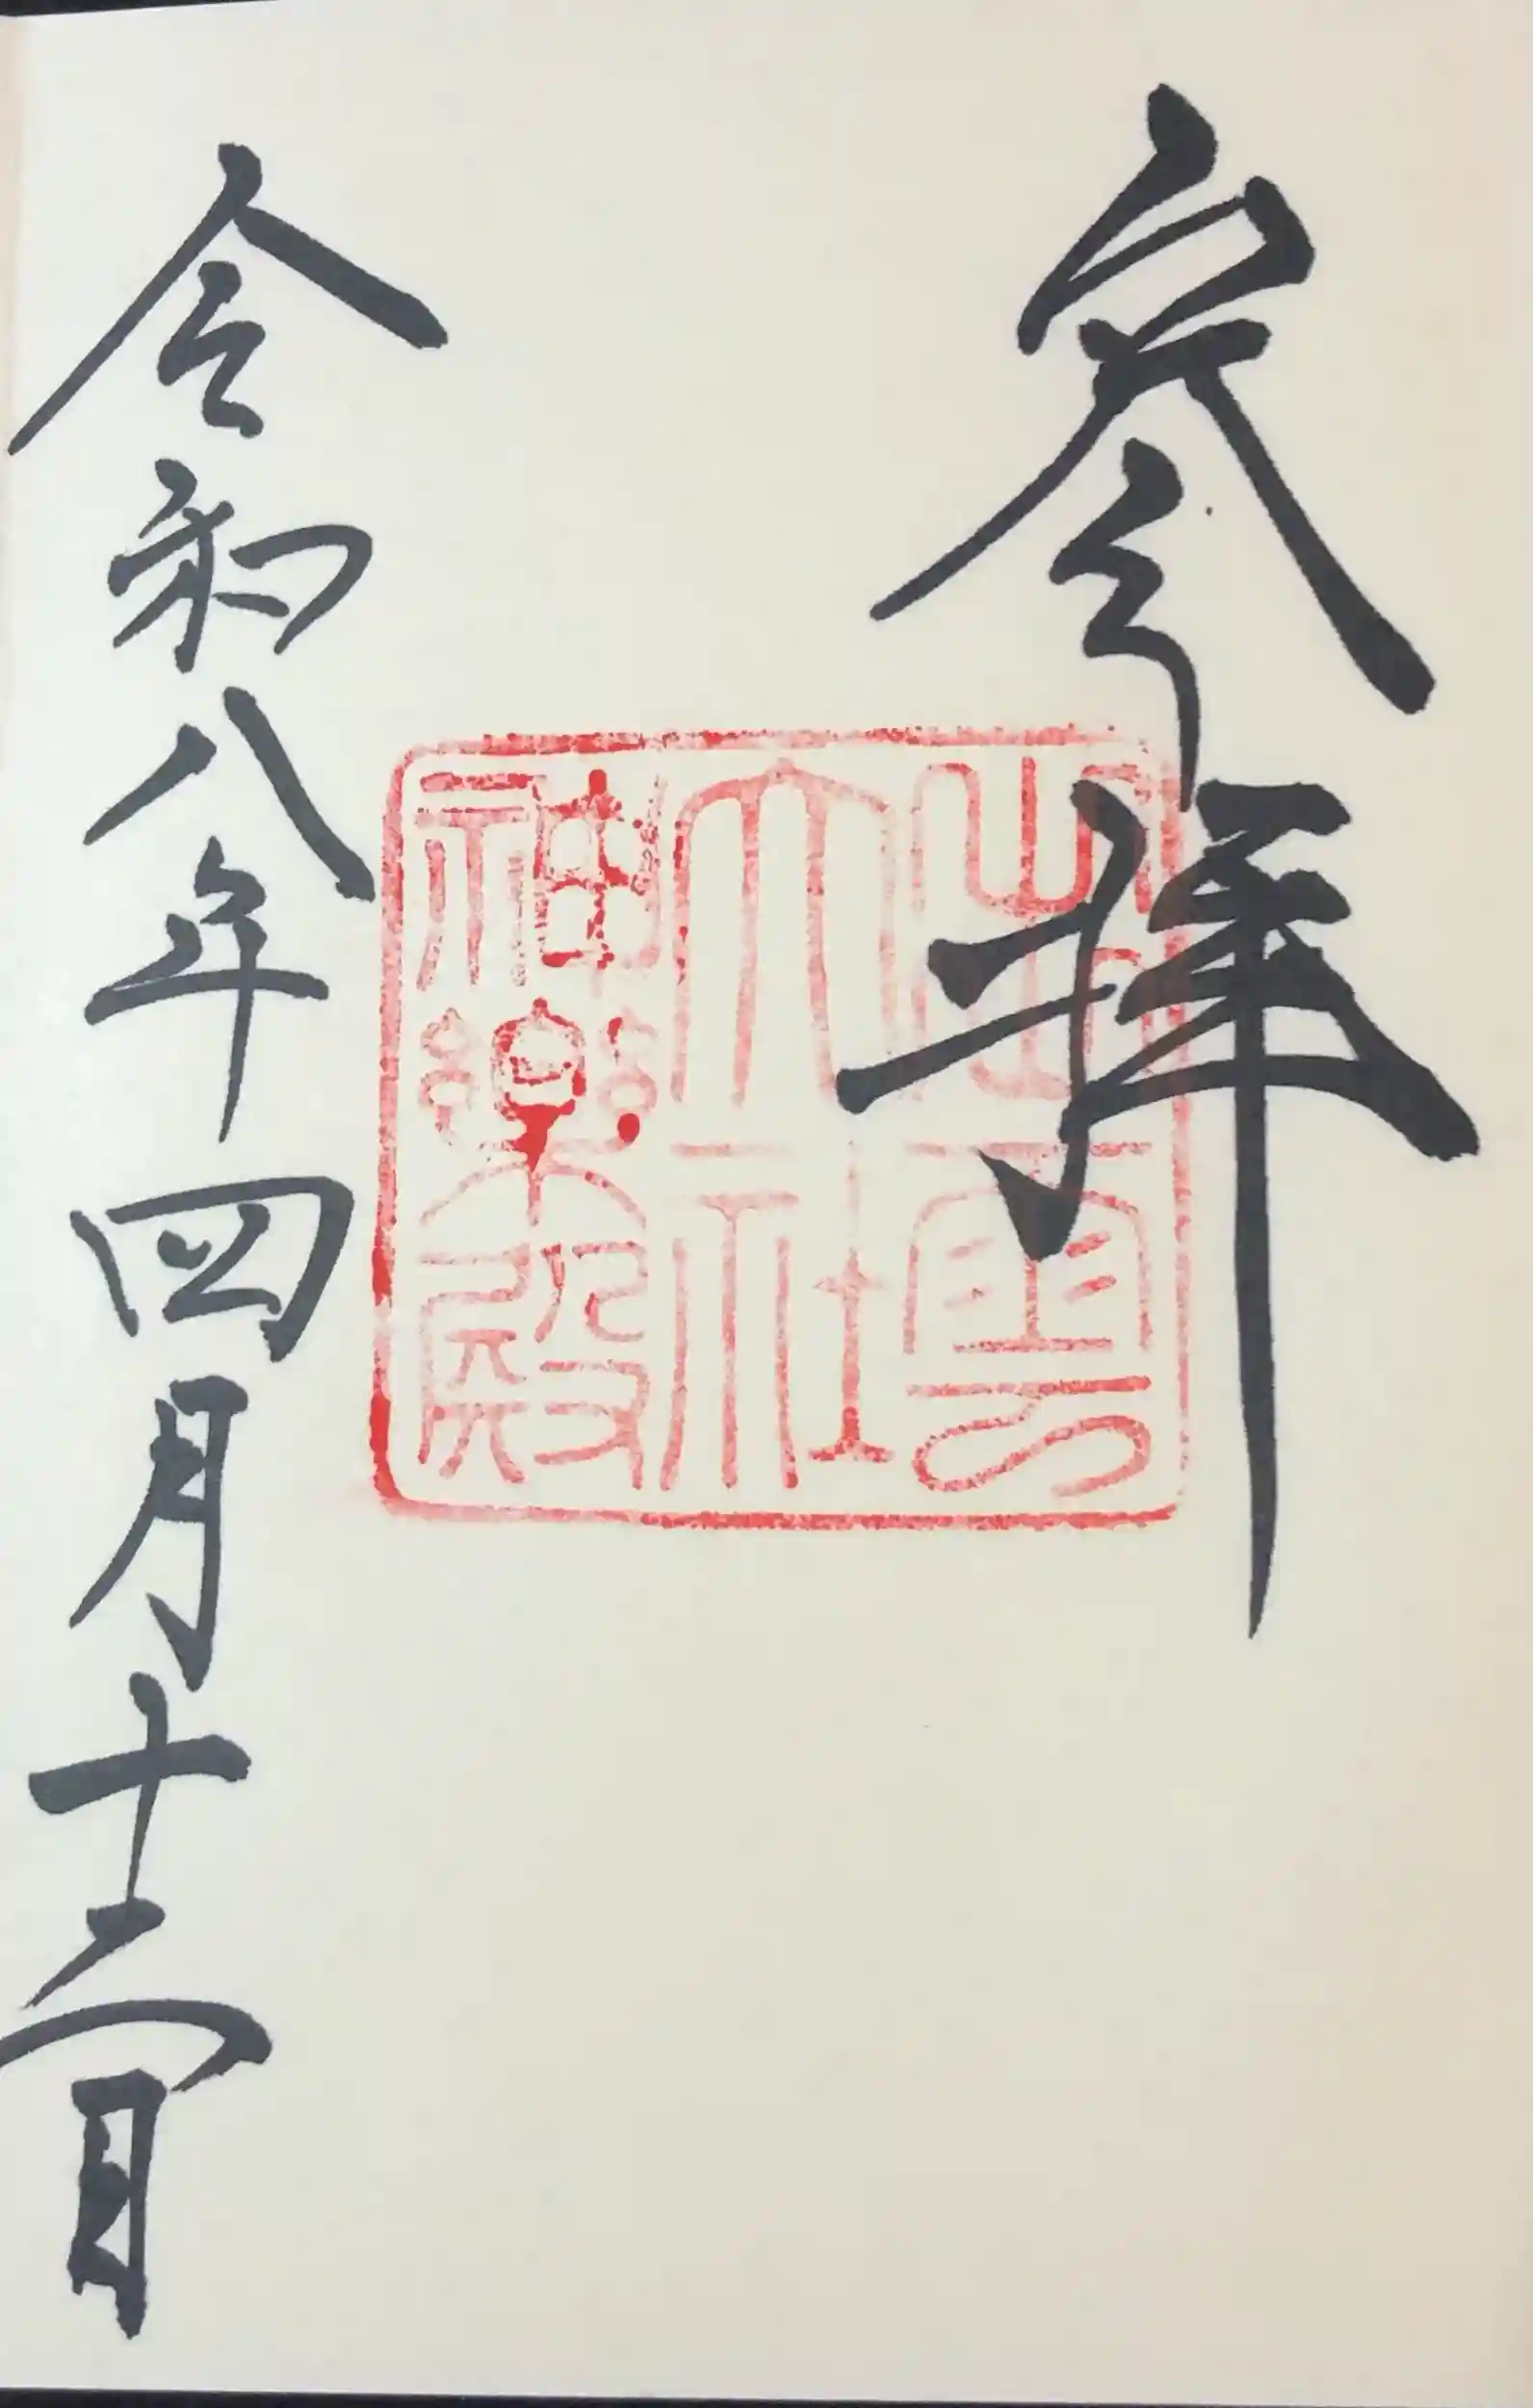 参拝
出雲
大社
神樂殿
令和八年四月十二日